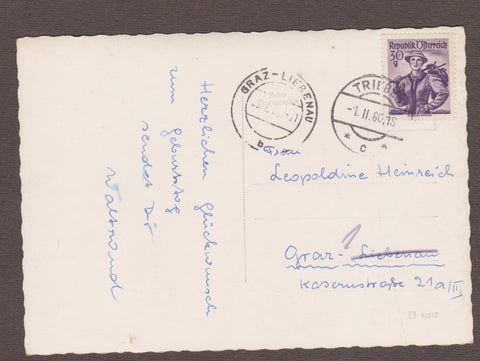 Herzlichen Glückwunsch
zum Geburtstag
sendet Dir
Waltraud
Republik Österreich
30
g
GRAZ-LIEBENAU
b
TRIEBEN
-1.II.60.-18
* c *
Frau
Leopoldine Heinreich
1
Graz-Liebenau
Kasernstraße 21a/III